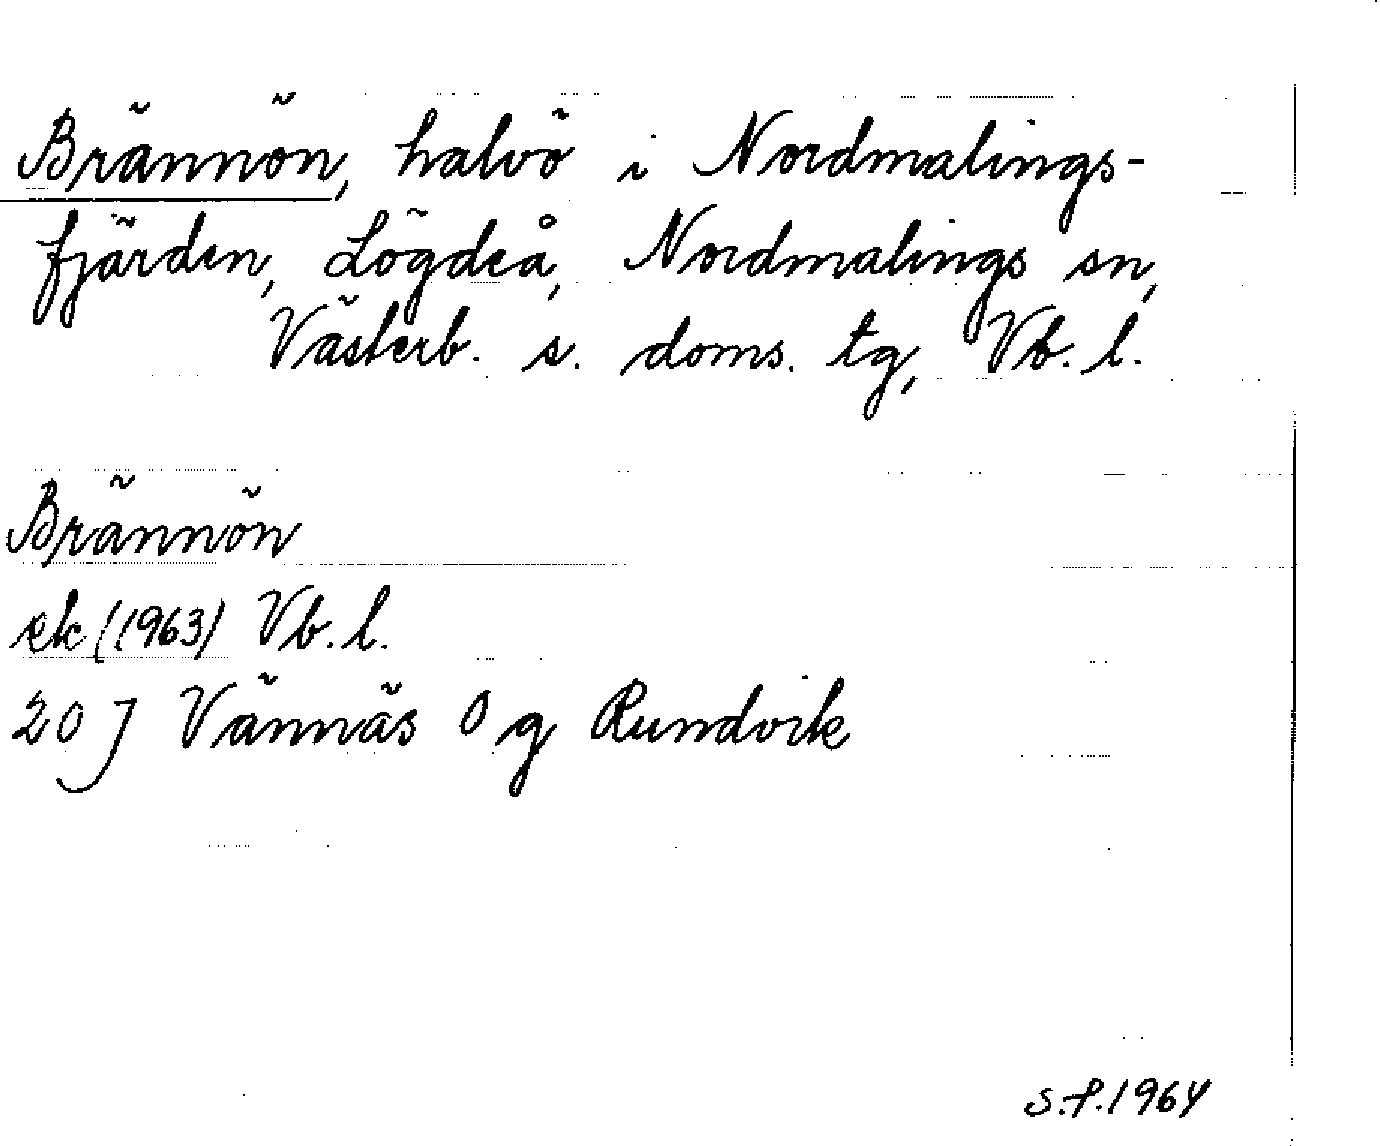 Brännön, halvö i Nordmalings-
fjärden, Lögdeå, Nordmalings sn,
Västerb. s. doms. tg, Vb. l.
Brännön
ek (1963) Vb. l.
20 J Vännäs 0 g Rundvik
S.F. 1964